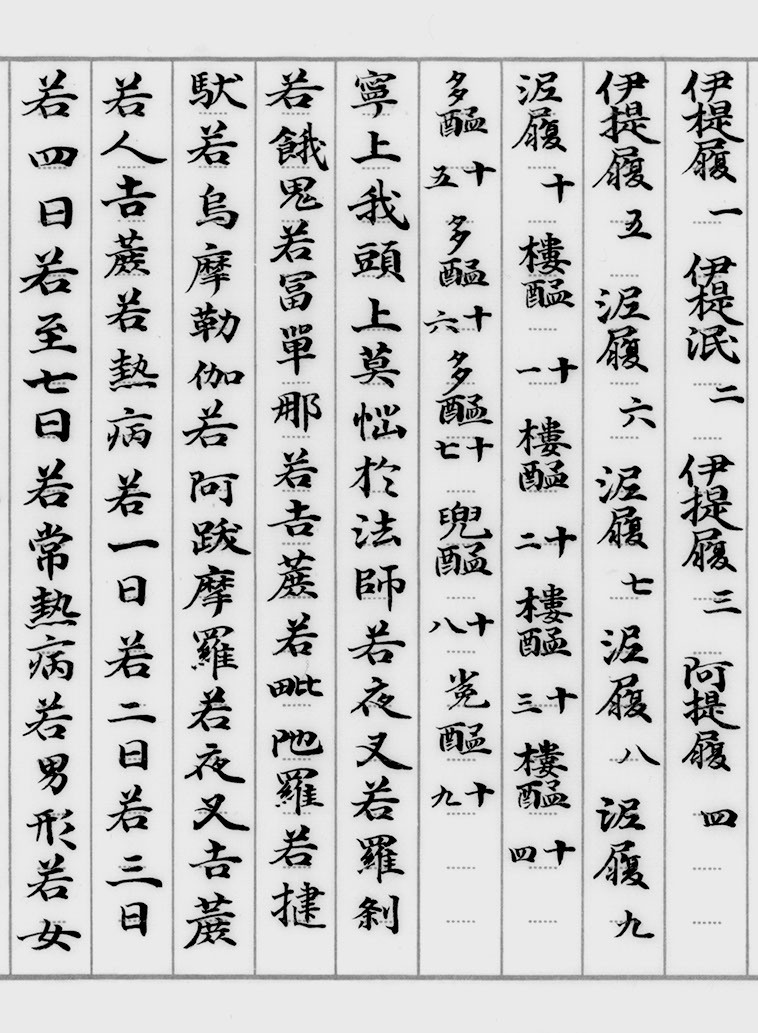 伊提履一伊提泯二伊提履三阿提履四
伊提履五泥履六泥履七泥履八泥履九
泥履十樓醯十一樓醯十二樓醯十三樓醯十四
多醯十五多醯十六多醯十七兜醯十八㝹醯十九
寧上我頭上莫惱於法師若夜叉若羅剎
若餓鬼若冨單那若吉蔗若毗陀羅若揵
馱若烏摩勒伽若阿跋摩羅若夜叉吉蔗
若人吉蔗若熱病若一日若二日若三日
若四日若至七日若常熱病若男形若女